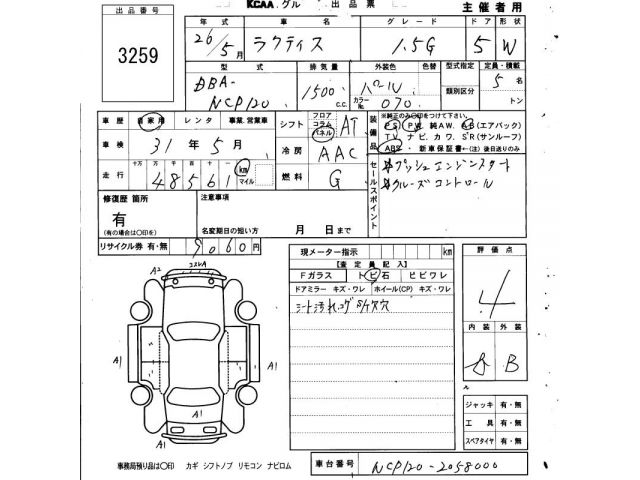 KCAA グル 出品票
主催者用
出品番号 年式 車名 グレード ドア 形状
3259
26年/5月 ラクティス 1.5G 5 W
型式 排気量 外装色 色替 型式指定 定員・積載
DBA-
NCP120 1500 c.c. パール
カラーNo. 070 類別区分 5名
トン
車歴 自家用 レンタ 事業、営業車 シフト フロア コラム パネル AT
車検 31年5月 冷房 AAC
走行 十万 万 千 百 十 一 48561 km マイル 燃料 G
装備品 ※純正のみ〇印をつけて下さい。
PS PW 純AW. AB(エアバック)
TV ナビ カワ SR(サンルーフ)
ABS・新車保証書(注)後日送りのみ
セールスポイント
☆プッシュエンジンスタート
☆クルーズコントロール
修復歴 箇所 注意事項
有
(有の場合は〇印を) 名変期日の短い方 月 日まで
リサイクル券 有・無 9060円
現メーター指示 km
評価点
【査定員記入】
Fガラス トビ石 ヒビワレ
ドアミラー キズ・ワレ ホイール(CP) キズ・ワレ
4
内装 外装
B
A2
A1 A1
A1
A1
ジャッキ 有・無
工具 有・無
スペアタイヤ 有・無
事務局預り品は〇印 カギ シフトノブ リモコン ナビロム
車台番号 NCP120-2058000